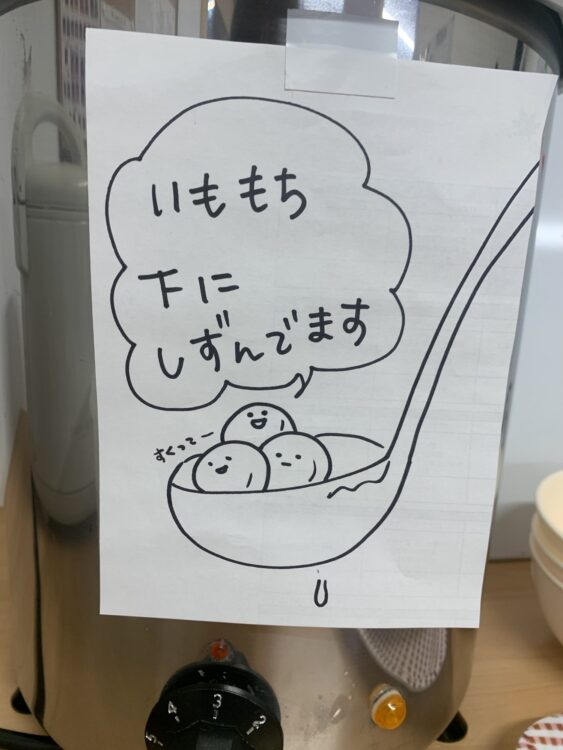 いももち
下に
しずんでます
すくってー
5 4 3 2